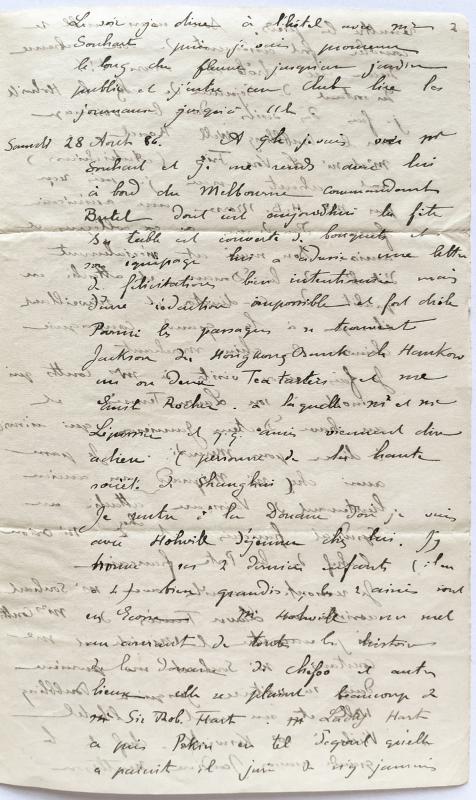 2
Le soir je dine à l'hôtel avec Mr
Souhart puis je vais promener
le long du fleuve jusqu'au jardin
public et j'entre au Club lire les
journaux jusqu'à 11h
Samedi 28 Aout 86. A 9h je vais voir Mr
Souhart et je me rends avec lui
à bord du Melbourne commandant
Butel dont est aujourd'hui la fête
Sa table est couverte de bouquets et
son équipage lui a adressé une lettre
de félicitations bien intentionnée mais
d'une rédaction impossible et fort drole
Parmi les passagers à se trouvent
Jackson de Hongkong Bank de Hankow
un ou deux Tea tasters et me
Emile Rocher à laquelle Mr et me
et q.q. amis viennent dire
adieu (personne de la haute
société de Shanghai)
Je rentre à la Douane d'où je vais
avec Hohwill déjeuner chez lui. J'y
trouve ses 2 derniers enfants (il en
a 4 bien grandis les 2 ainés sont
en Ecosse) Me Hohwill me met
au courant de toute la histoire
de de chefoo et autres
lieux elle se plaint beaucoup de
Mr Sir Rob. Hart Me Lady Hart
a pris Pekin en tel dégout qu'elle
a et juré de ne jamais